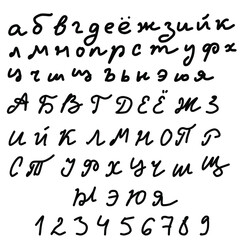 абвгдеёжзийк
лмнопрстуфх
цчшщъьыэюя
АБВГДЕЁЖЗ
ИЙКЛМНОПР
СТУФХЦЧШЩ
ЫЭЮЯ
123456789